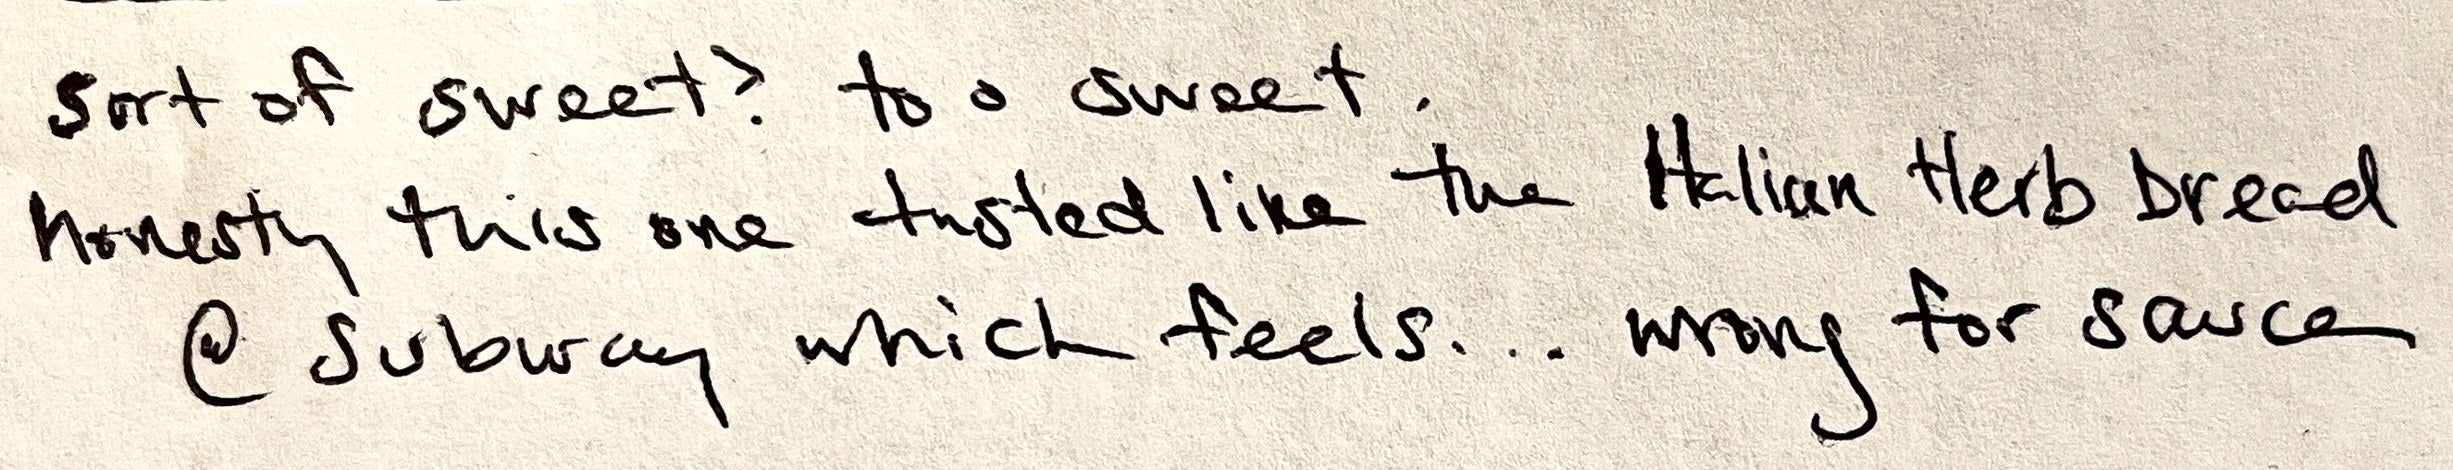 sort of sweet? too sweet.
honesty this one tasted like the Italian Herb Bread
@ Subway which feels... wrong for sauce